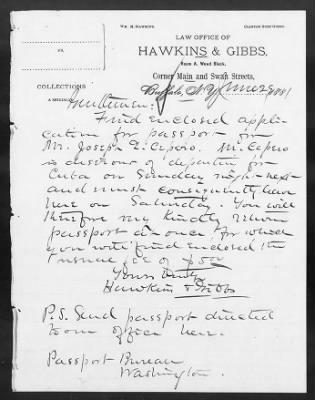 WM. H. HAWKINS.
CLINTON B. GIBBS.
LAW OFFICE OF
HAWKINS & GIBBS,
Room 8, Weed Block,
Corner Main and Swan Streets,
Buffalo, N.Y., 1881
VS.
COLLECTIONS
Gentlemen:
Find enclosed appli-
cation for passport for
Mr. Joseph E. Cepero. Mr. Cepero
is desirous of departing for
Cuba on Sunday night next
and must consequently leave
here on Saturday. You will
therefore kindly return
passport at once for which
you will find enclosed the
fee of
Yours truly
Hawkins & Gibbs
P.S. Send passport directed
to our office here.
Passport Bureau
Washington.